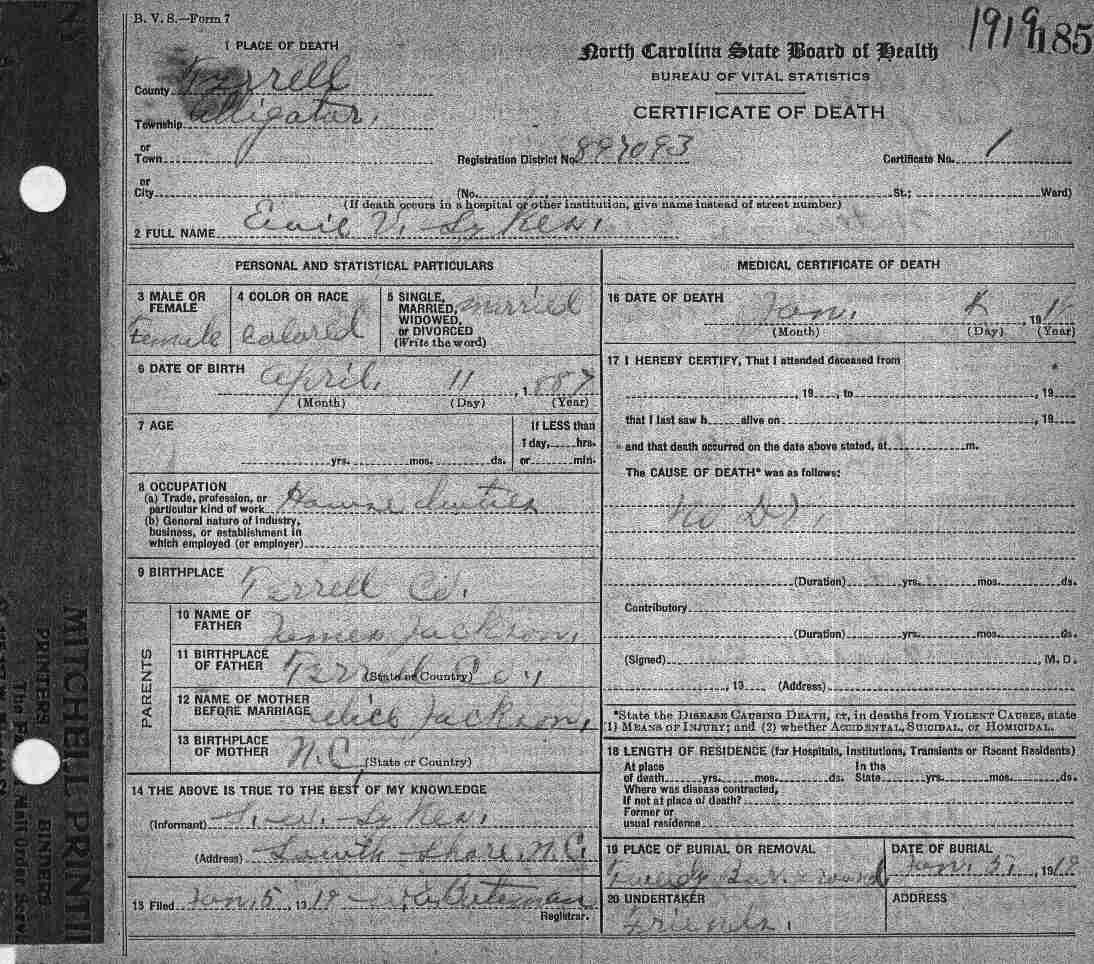 B. V. S.—Form 7
1919 185
1 PLACE OF DEATH
North Carolina State Board of Health
BUREAU OF VITAL STATISTICS
CERTIFICATE OF DEATH
County Tyrrell
Township Alligator,
or
Town
Registration District No. 897093
Certificate No. 1
or
City (No. St.; Ward)
(If death occurs in a hospital or other institution, give name instead of street number)
2 FULL NAME V. Sykes.
PERSONAL AND STATISTICAL PARTICULARS
3 MALE OR FEMALE Female
4 COLOR OR RACE colored
5 SINGLE, MARRIED, WIDOWED, or DIVORCED (Write the word) married
6 DATE OF BIRTH April 11, 1887
(Month) (Day) (Year)
7 AGE
If LESS than
1 day, hrs.
yrs. mos. ds. or min.
8 OCCUPATION
(a) Trade, profession, or
particular kind of work House duties
(b) General nature of industry,
business, or establishment in
which employed (or employer)
9 BIRTHPLACE Tyrrell Co.
PARENTS
10 NAME OF FATHER James Jackson,
11 BIRTHPLACE OF FATHER Tyrrell Co.,
(State or Country)
12 NAME OF MOTHER BEFORE MARRIAGE Jackson,
13 BIRTHPLACE OF MOTHER N.C.
(State or Country)
14 THE ABOVE IS TRUE TO THE BEST OF MY KNOWLEDGE
(Informant) Sykes.
(Address) South Shore, N.C.
15 Filed Jan, 5, 1919 Bateman
Registrar.
MEDICAL CERTIFICATE OF DEATH
16 DATE OF DEATH
Jan. , 191
(Month) (Day) (Year)
17 I HEREBY CERTIFY, That I attended deceased from
, 19 , to , 19
that I last saw h alive on , 19
and that death occurred on the date above stated, at m.
The CAUSE OF DEATH* was as follows:
No Dr,
(Duration) yrs. mos. ds.
Contributory
(Duration) yrs. mos. ds.
(Signed) , M. D.
, 19 (Address)
*State the DISEASE CAUSING DEATH, or, in deaths from VIOLENT CAUSES, state
(1) MEANS OF INJURY; and (2) whether ACCIDENTAL, SUICIDAL, or HOMICIDAL.
18 LENGTH OF RESIDENCE (for Hospitals, Institutions, Transients or Recent Residents)
At place In the
of death yrs. mos. ds. State yrs. mos. ds.
Where was disease contracted,
If not at place of death?
Former or
usual residence
19 PLACE OF BURIAL OR REMOVAL
DATE OF BURIAL
Jan. 1919
20 UNDERTAKER
Friends.
ADDRESS
MITCHELL PRINTI
PRINTERS BINDERS